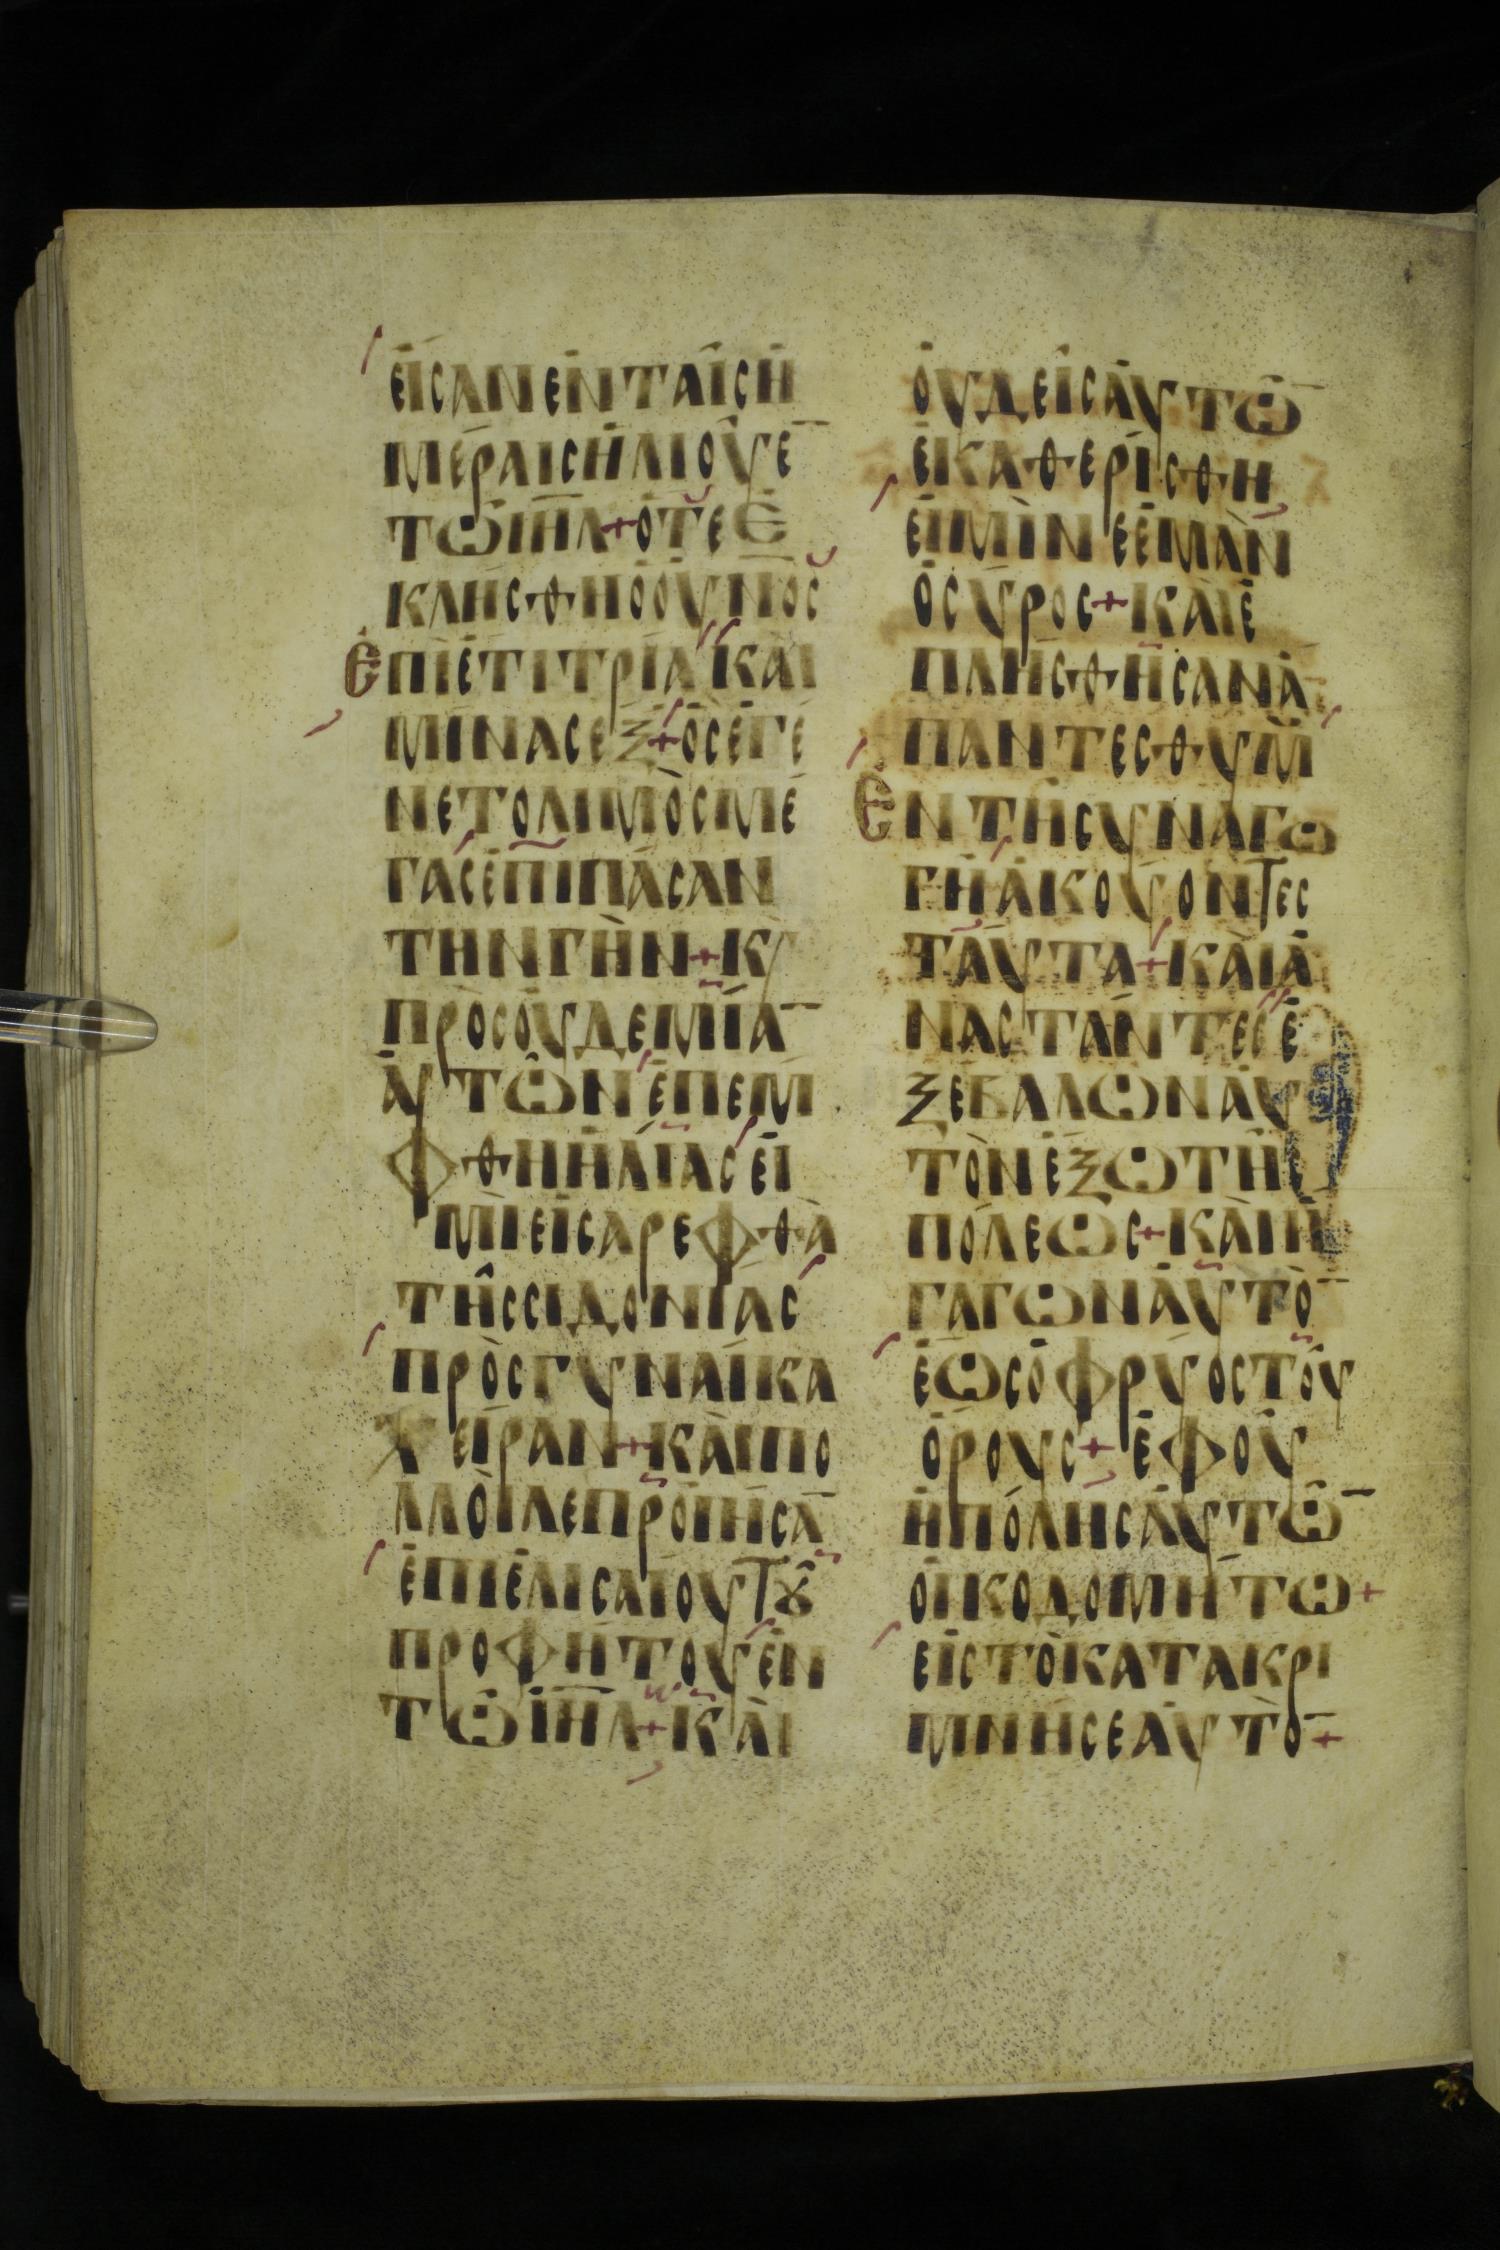 ΕἸСΑΝΕΝΤΑῖСΗ
ΜΕΡΑΙСΗΛΙΟΥΕ̅
ΤΩΙΗ̅Λ+ΟΤΕΕ
ΚΛΗСΘΗΟΟΥ̅Ν̅ΟС
ΕΠΙΕΤΙΤΡΙΑΚΑΙ
ΜΙΝΑСΕΞ+ΟСΕΓΕ
ΝΕΤΟΛΙΜὸСΜΕ
ΓΑСΕΠΙΠΑСΑΝ
ΤΗΝΓῊΝ+Κ/
ΠΡΟСΟΥΔΕΜΙΑ̅
ΑΥΤῶΝΕΠΕΜ
ΦΘΗΗΛΙΑСΕΙ
ΜῊΕΙСΑΡΕΦΘᾺ
ΤΗ͂ССΙΔΟΝΙΑС
ΠΡὸСΓΥΝΑΙΚΑ
ΧΕΙΡΑΝ+ΚΑῚΠΟ
ΛΛΟῚΛΕΠΡΟΙΗСΑ̅
ΕΠΙΕΛΙСΑΙΟΥΤȣ͂
ΠΡΟΦΗΤΟΥΕΝ
ΤΩΙΗ̅Λ+ΚΑῚ
ΟΥΔΕΙСΑΥΤΩ̅
ΕΚΑΘΕΡΙСΘΗ
ΕΙΜῊΝΕΕΜᾺΝ
ΟСΥΡΟС+ΚΑῚΕ
ΠΛΗСΘΗСΑΝΑ
ΠΑΝΤΕСΘΥΜ̅
ΕΝΤΗСΥΝΑΓΩ
ΓΗΑΚΟΥΟΝΤΕС
ΤΑΥΤΑ+ΚΑῚΑ
ΝΑСΤΑΝΤΕСΕ
ΞΕΒΑΛΩΝΑΥ
ΤὸΝΕΞΩΤΗС
ΠΟΛΕΩС+ΚΑῚΗ
ΓΑΓΩΝΑΥΤὸ̅
ΕΩСΟΦΡΥΟСΤΟΥ
ΟΡΟΥС+ΕΦΟΥ
ΗΠΟΛΗСΑΥΤΩ̅
ΟΙΚΟΔΟΜΗΤΩ+
ΕΙСΤὸΚΑΤΑΚΡΙ
ΜΝΗСΕΑΥΤὸ̅+